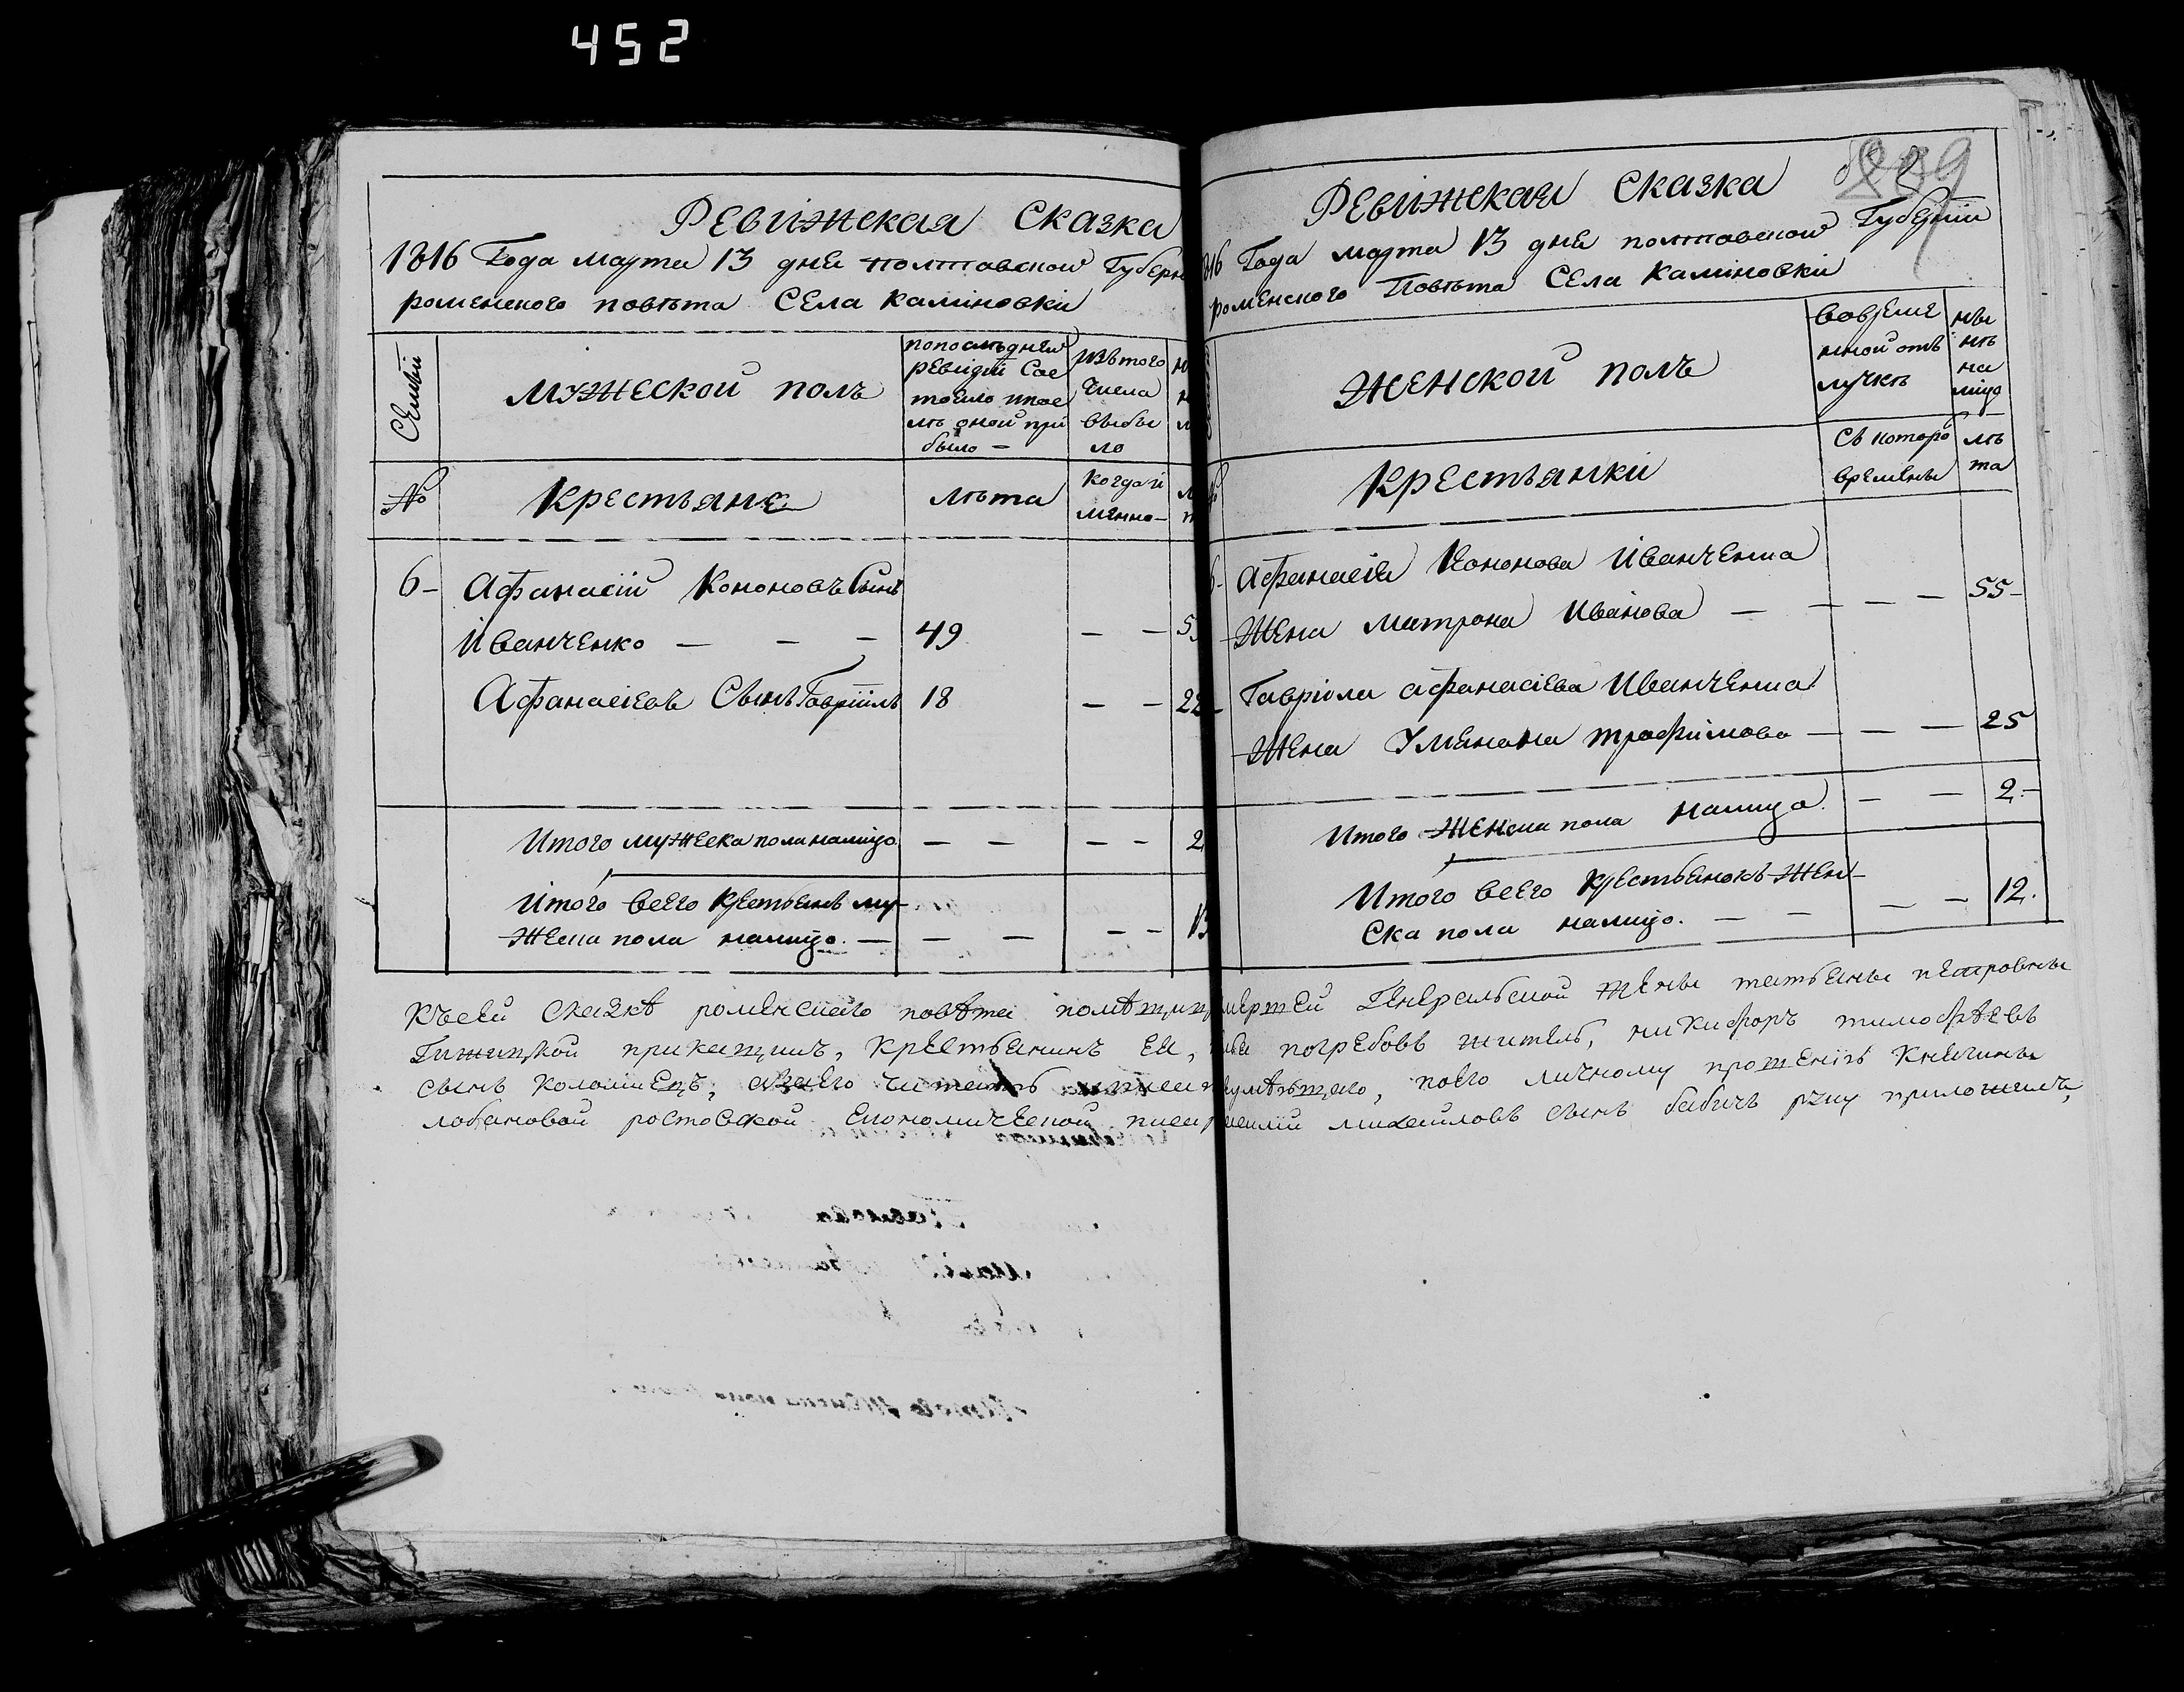 452
Ревижская Сказка
1816 Года марта 13 дня полтавской Губерн
роменского повѣта Села калиновки
Семьи
мужеской полъ
попослѣдней ревизіи Сос тояло ипос лѣ оной при было —
Изътого Числа выбы ло
№
крестьяне
лѣта
когда и мянно —
6 - Афанасій Кононовъ Сынъ
Иванченко — — — 49 — —
Афанасіевъ Сынъ Гавріилъ 18 — — 22
Итого мужеска пола налицо — — — — 2
Итого всего крестьянъ му-
жеска пола налицо. — — — — — 13
Ревижская Сказка
289
1816 Года марта 13 дня полтавской Губерніи
роменского Повѣта Села калиновки
Женской полъ
вовреме нной отъ лучкѣ
ны нѣ на лицо
крестьянки
Съ которо времены
лѣ та
6- Афанасія Кононова Иванченка
Жена матрона Иванова — — — — 55 —
Гавріила афанасіева Иванченка
Жена Умяна трофимова — — — 25
Итого женска пола налицо. — — 2. —
Итого всего крестьянокъ жен-
ска пола налицо. — — — — 12.
Къ сей Сказкѣ роменского повѣта помѣщи Генеральской жены татьяны петровны
прикащикъ, крестьянинъ ея, погребовъ житель, никифоръ тимофѣевъ
сынъ коломiецъ, поего личному прошенію княгины
лобановой ростовской Економической михайловъ сынъ бабичъ руку приложилъ,